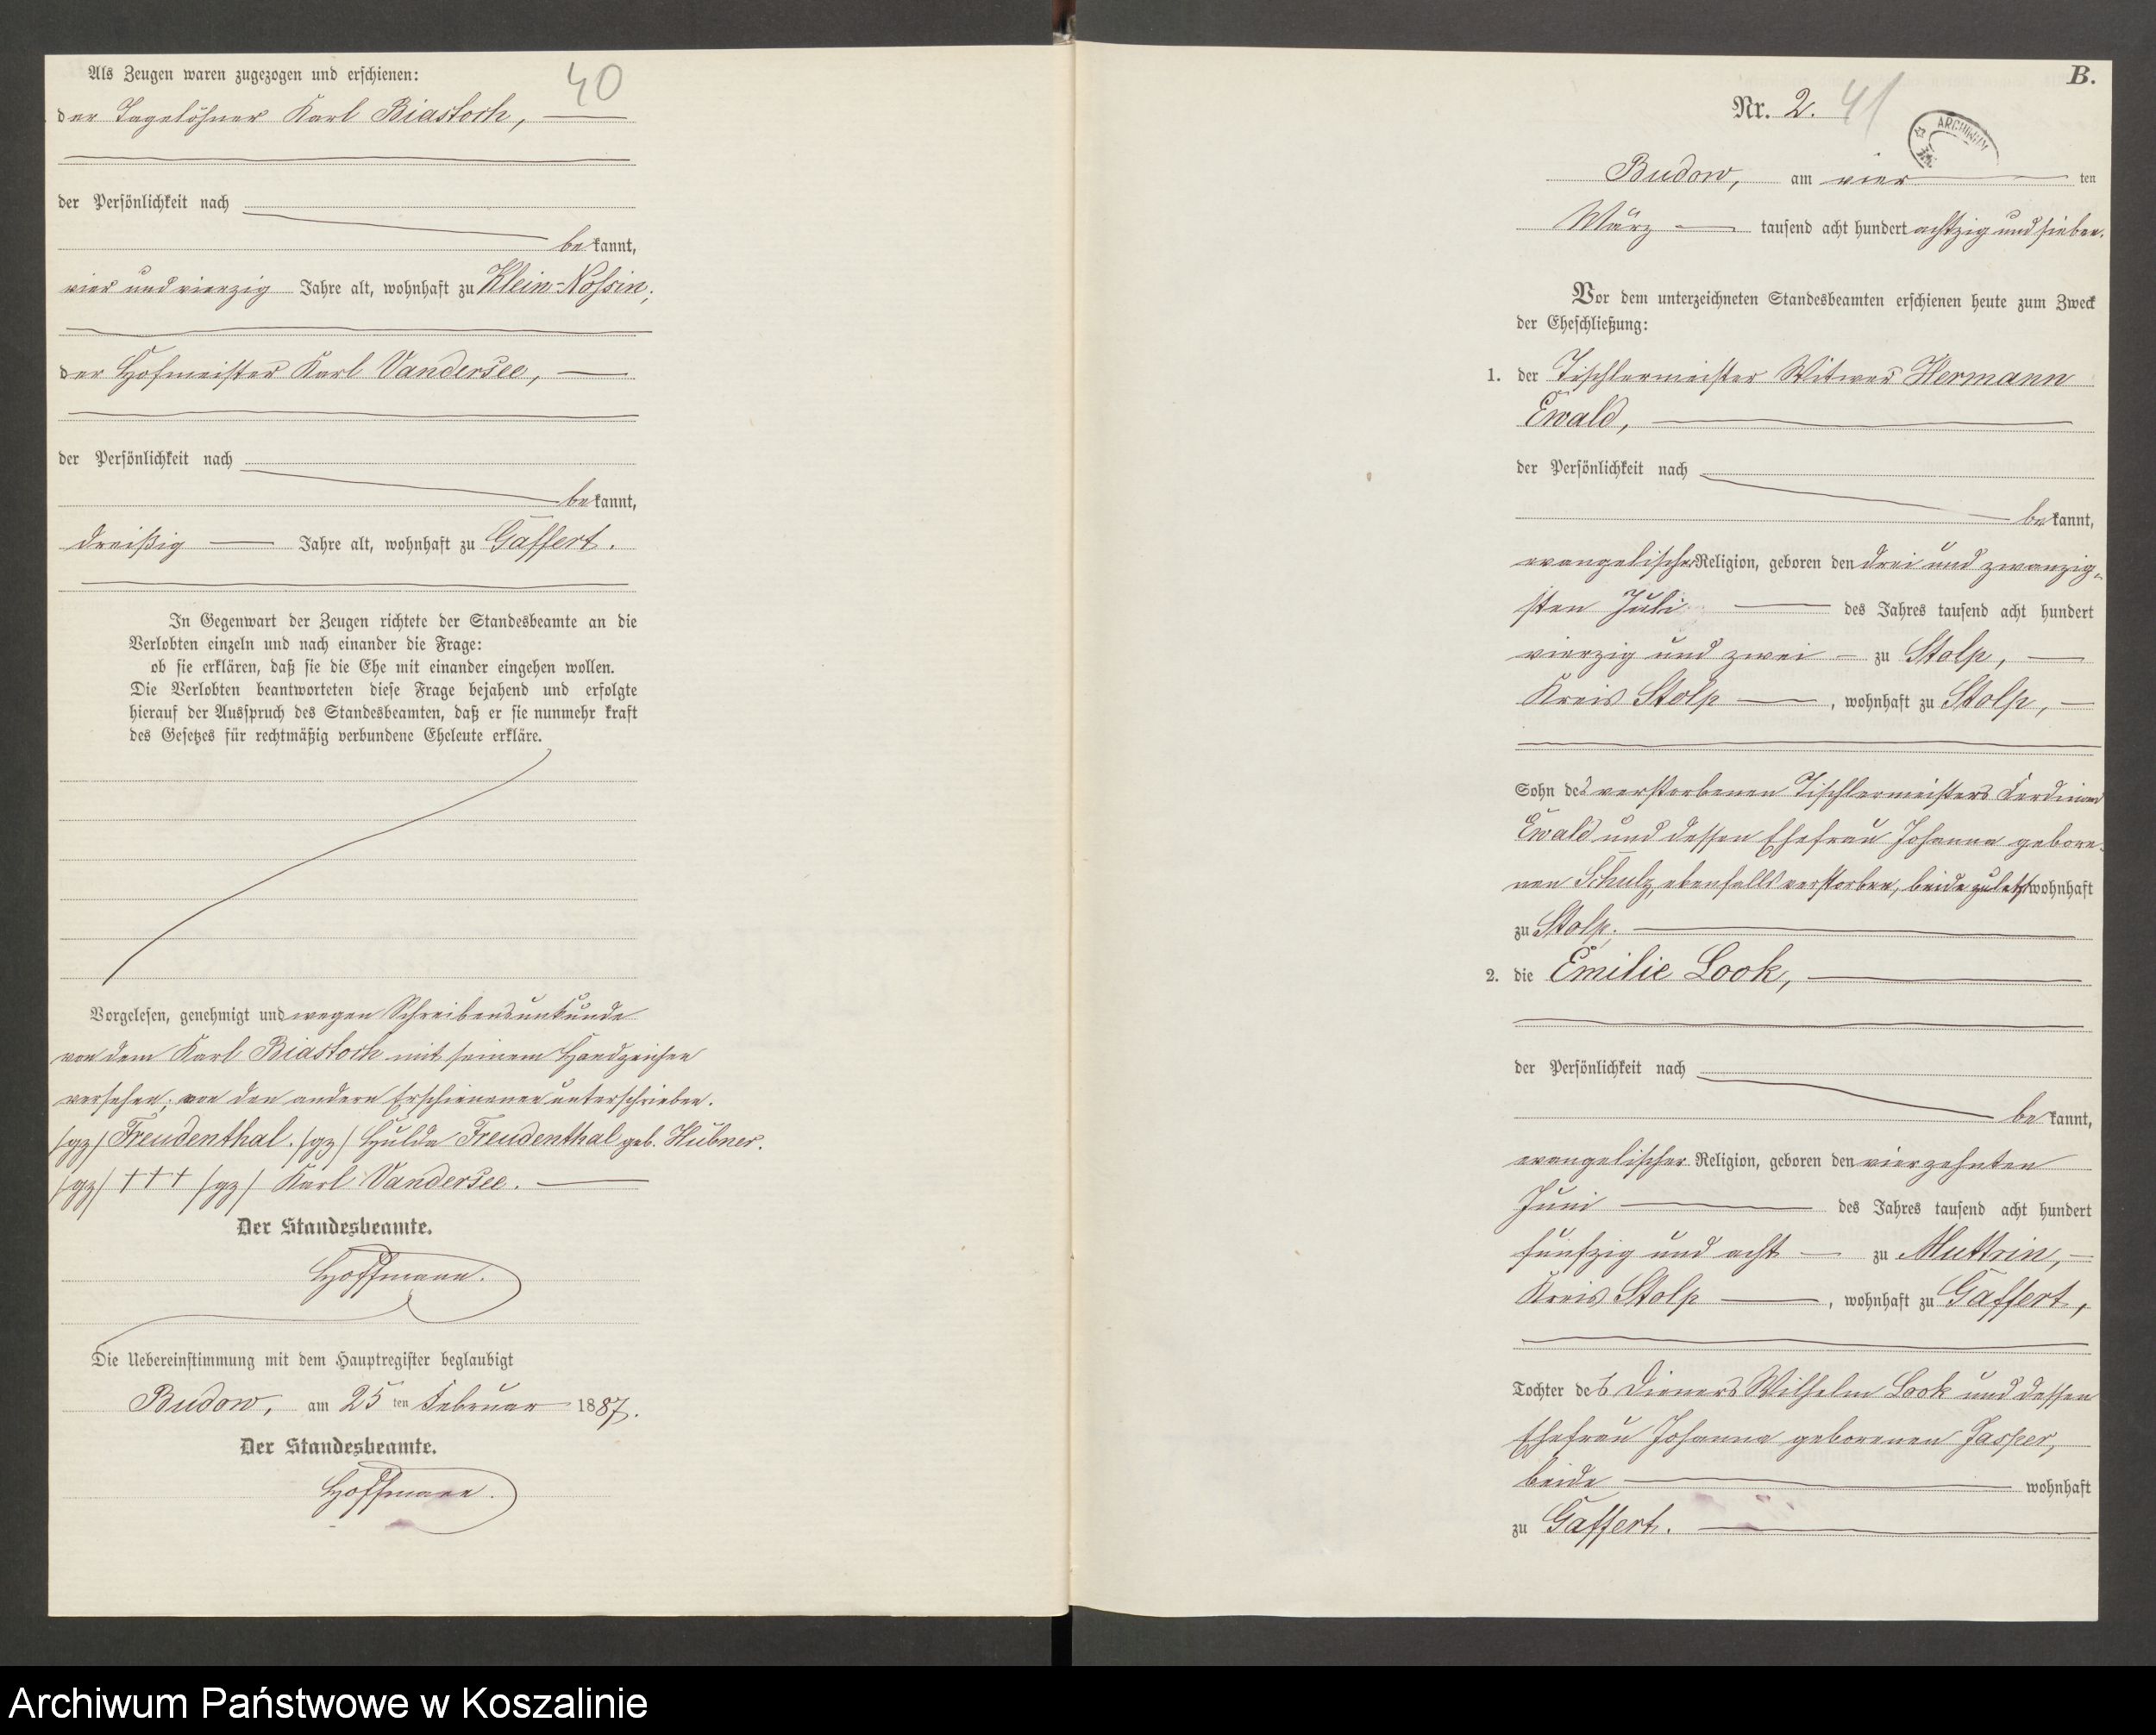 Als Zeugen waren zugezogen und erschienen:
40
der Tagelöhner Karl Biastoch,
der Persönlichkeit nach
bekannt,
vier und vierzig Jahre alt, wohnhaft zu Klein-Nossin;
der Hofmeister Karl Vandersee,
der Persönlichkeit nach
bekannt,
dreißig Jahre alt, wohnhaft zu Gaffert.
In Gegenwart der Zeugen richtete der Standesbeamte an die
Verlobten einzeln und nach einander die Frage:
ob sie erklären, daß sie die Ehe mit einander eingehen wollen.
Die Verlobten beantworteten diese Frage bejahend und erfolgte
hierauf der Ausspruch des Standesbeamten, daß er sie nunmehr kraft
des Gesetzes für rechtmäßig verbundene Eheleute erkläre.
Vorgelesen, genehmigt und wegen Schreibensunkunde
von dem Karl Biastoch mit seinem Handzeichen
versehen; von den andern Erschienenen unterschrieben.
/gz/ Freudenthal. /gz/ Hulda Freudenthal geb. Hübner.
/gz/ +++ /gz/ Karl Vandersee.
Der Standesbeamte.
Hoffmann.
Die Uebereinstimmung mit dem Hauptregister beglaubigt
Budow, am 25ten Februar 1887.
Der Standesbeamte.
Hoffmann.
B.
Nr. 2. 41
ARCHIWUM
Budow, am vier ten
März tausend acht hundert achtzig und sieben.
Vor dem unterzeichneten Standesbeamten erschienen heute zum Zweck
der Eheschließung:
1. der Tischlermeister Witwer Hermann
Ewald,
der Persönlichkeit nach
bekannt,
evangelischer Religion, geboren den drei und zwanzig-
sten Juli des Jahres tausend acht hundert
vierzig und zwei zu Stolp,
Kreis Stolp, wohnhaft zu Stolp,
Sohn des verstorbenen Tischlermeisters Ferdinand
Ewald und dessen Ehefrau Johanna gebore-
nen Schulz, ebenfalls verstorben, beide zuletzt wohnhaft
zu Stolp.
2. die Emilie Look,
der Persönlichkeit nach
bekannt,
evangelischer Religion, geboren den vierzehnten
Juni des Jahres tausend acht hundert
fünfzig und acht zu Muttrin,
Kreis Stolp, wohnhaft zu Gaffert,
Tochter des Dieners Wilhelm Look und dessen
Ehefrau Johanna geborenen Jasper,
beide wohnhaft
zu Gaffert.
Archiwum Państwowe w Koszalinie